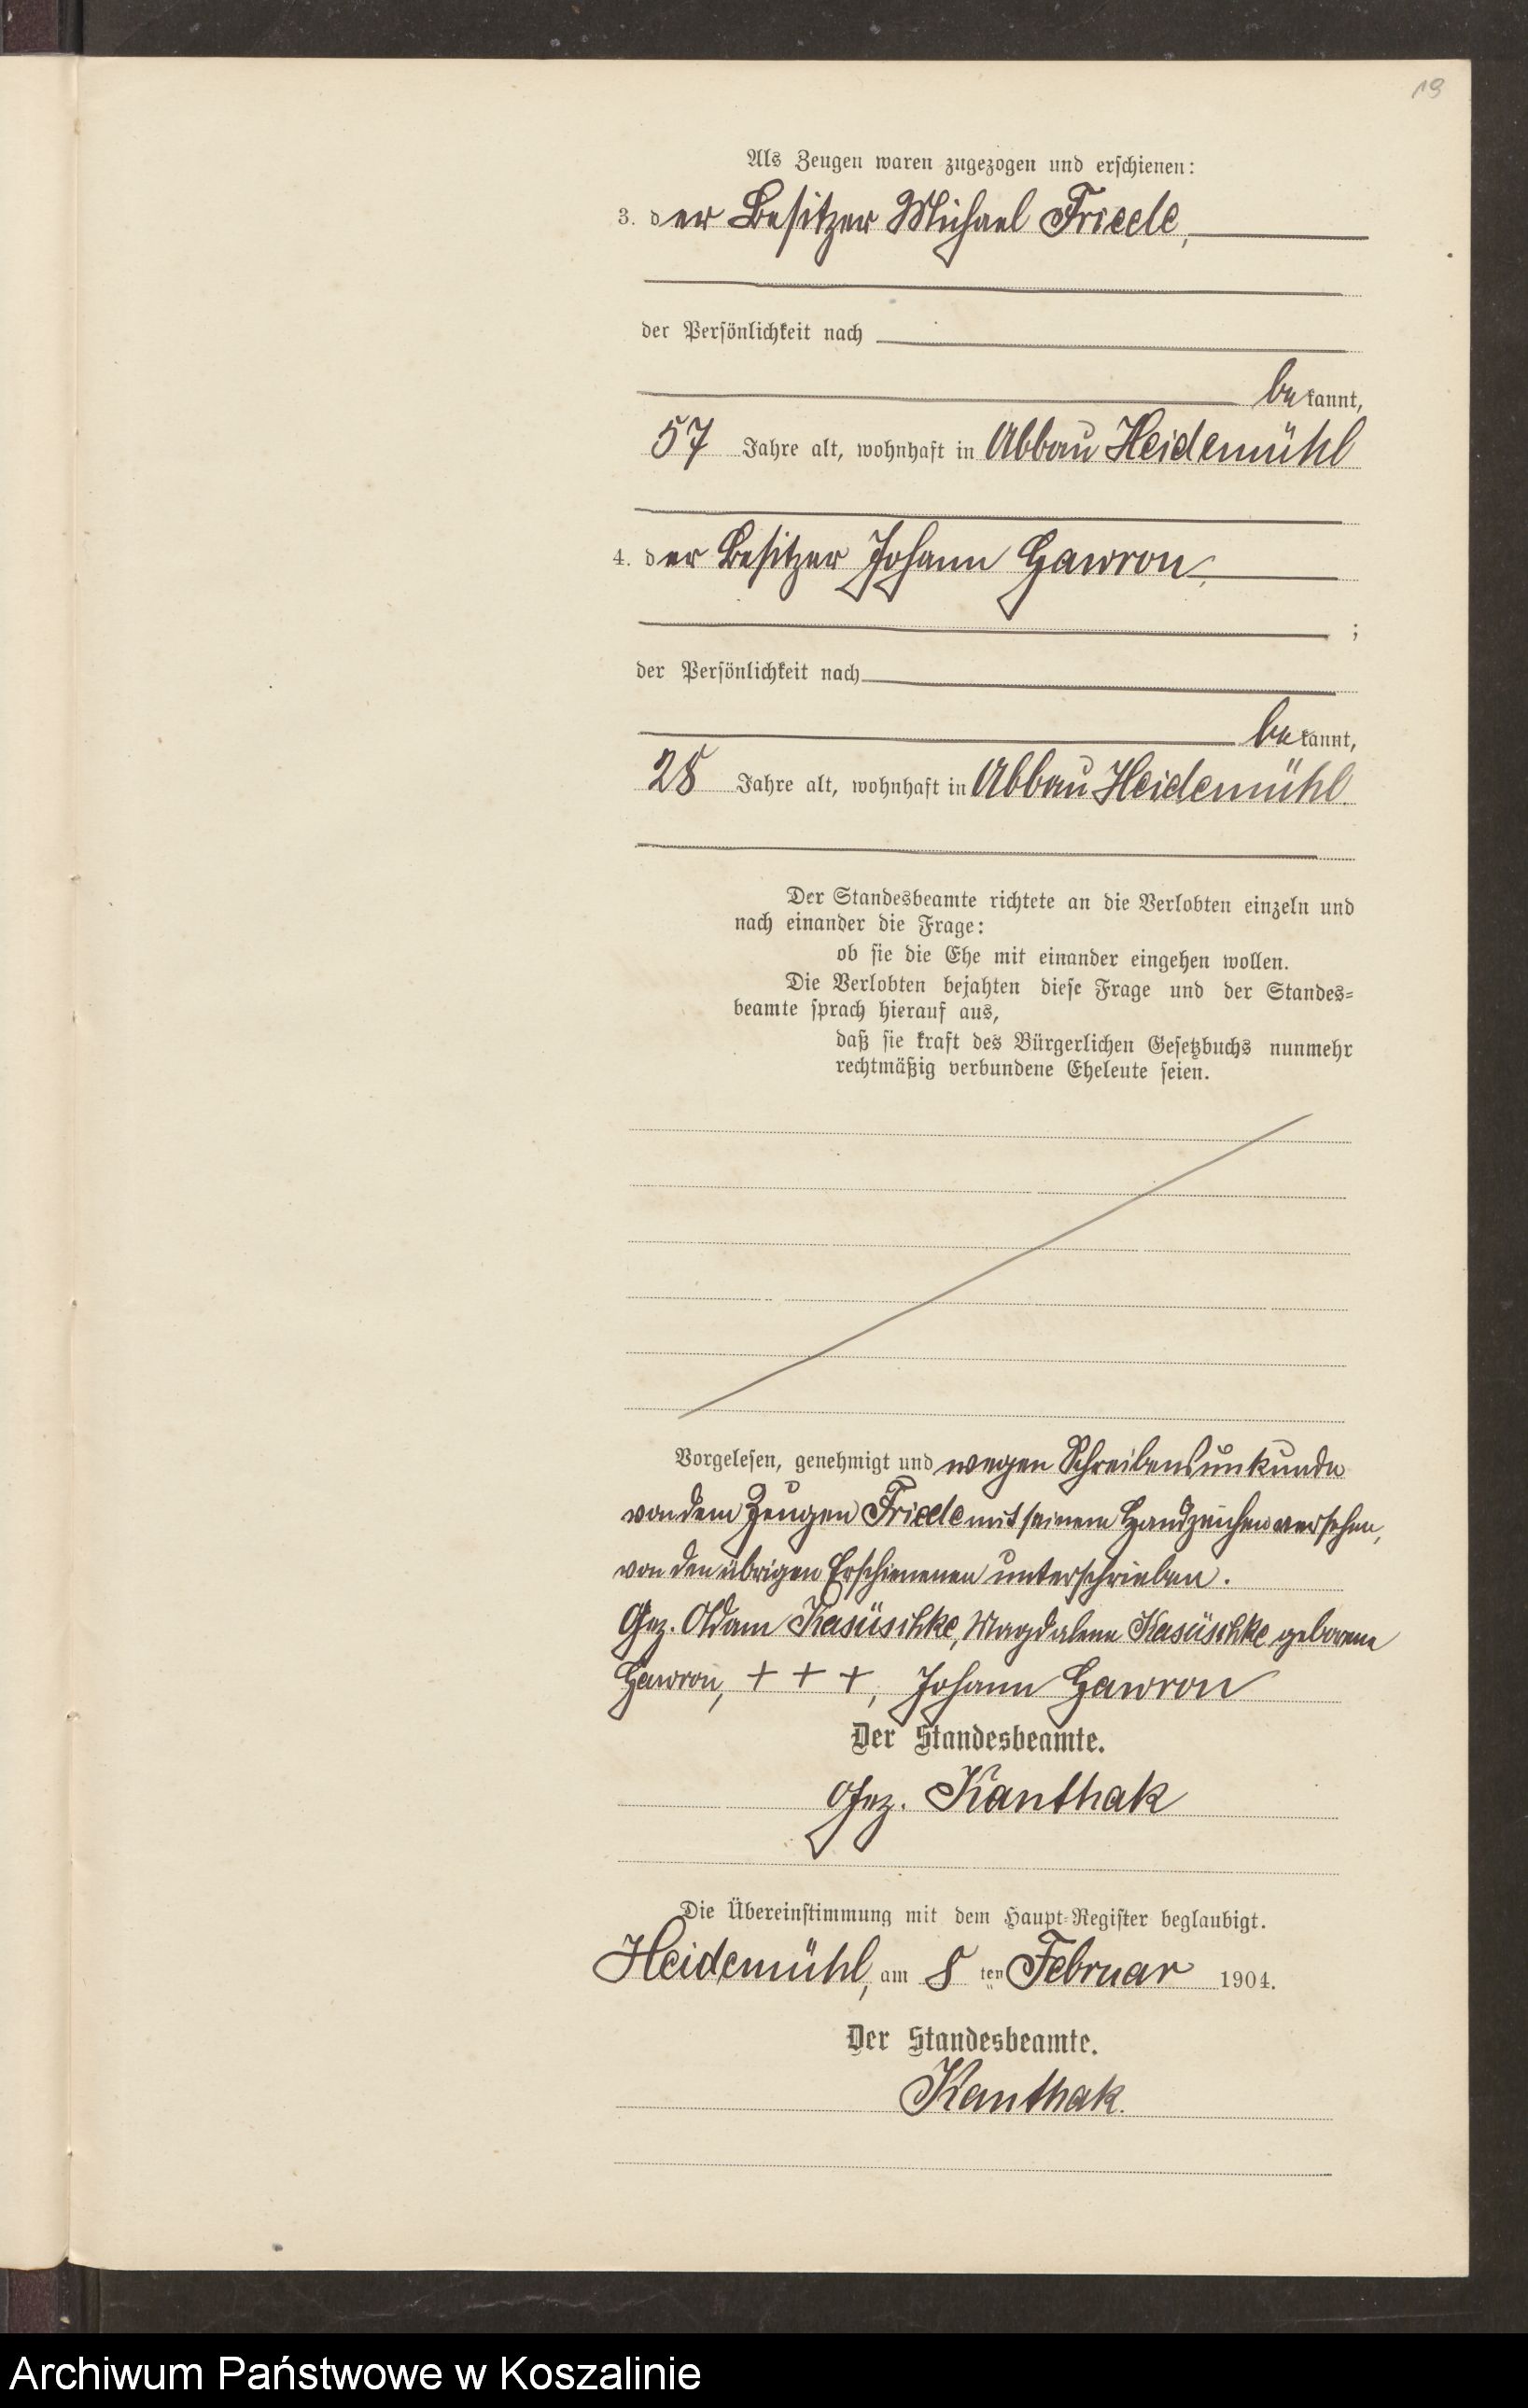 19
Als Zeugen waren zugezogen und erschienen:
3. der Besitzer Michael Friede,
der Persönlichkeit nach
bekannt,
57 Jahre alt, wohnhaft in Abbau Heidemühl
4. der Besitzer Johann Gawron,
;
der Persönlichkeit nach
bekannt,
28 Jahre alt, wohnhaft in Abbau Heidemühl.
Der Standesbeamte richtete an die Verlobten einzeln und
nach einander die Frage:
ob sie die Ehe mit einander eingehen wollen.
Die Verlobten bejahten diese Frage und der Standes-
beamte sprach hierauf aus,
daß sie kraft des Bürgerlichen Gesetzbuchs nunmehr
rechtmäßig verbundene Eheleute seien.
Vorgelesen, genehmigt und wegen Schreibensunkunde
von dem Zeugen Friede mit seinem Handzeichen versehen,
von den übrigen Erschienenen unterschrieben.
Gez. Adam Kasüschke, Magdalena Kasüschke geborene
Gawron, + + +, Johann Gawron
Der Standesbeamte.
Gez. Kanthak
Die Übereinstimmung mit dem Haupt-Register beglaubigt.
Heidemühl, am 8ten Februar 1904.
Der Standesbeamte.
Kanthak.
Archiwum Państwowe w Koszalinie